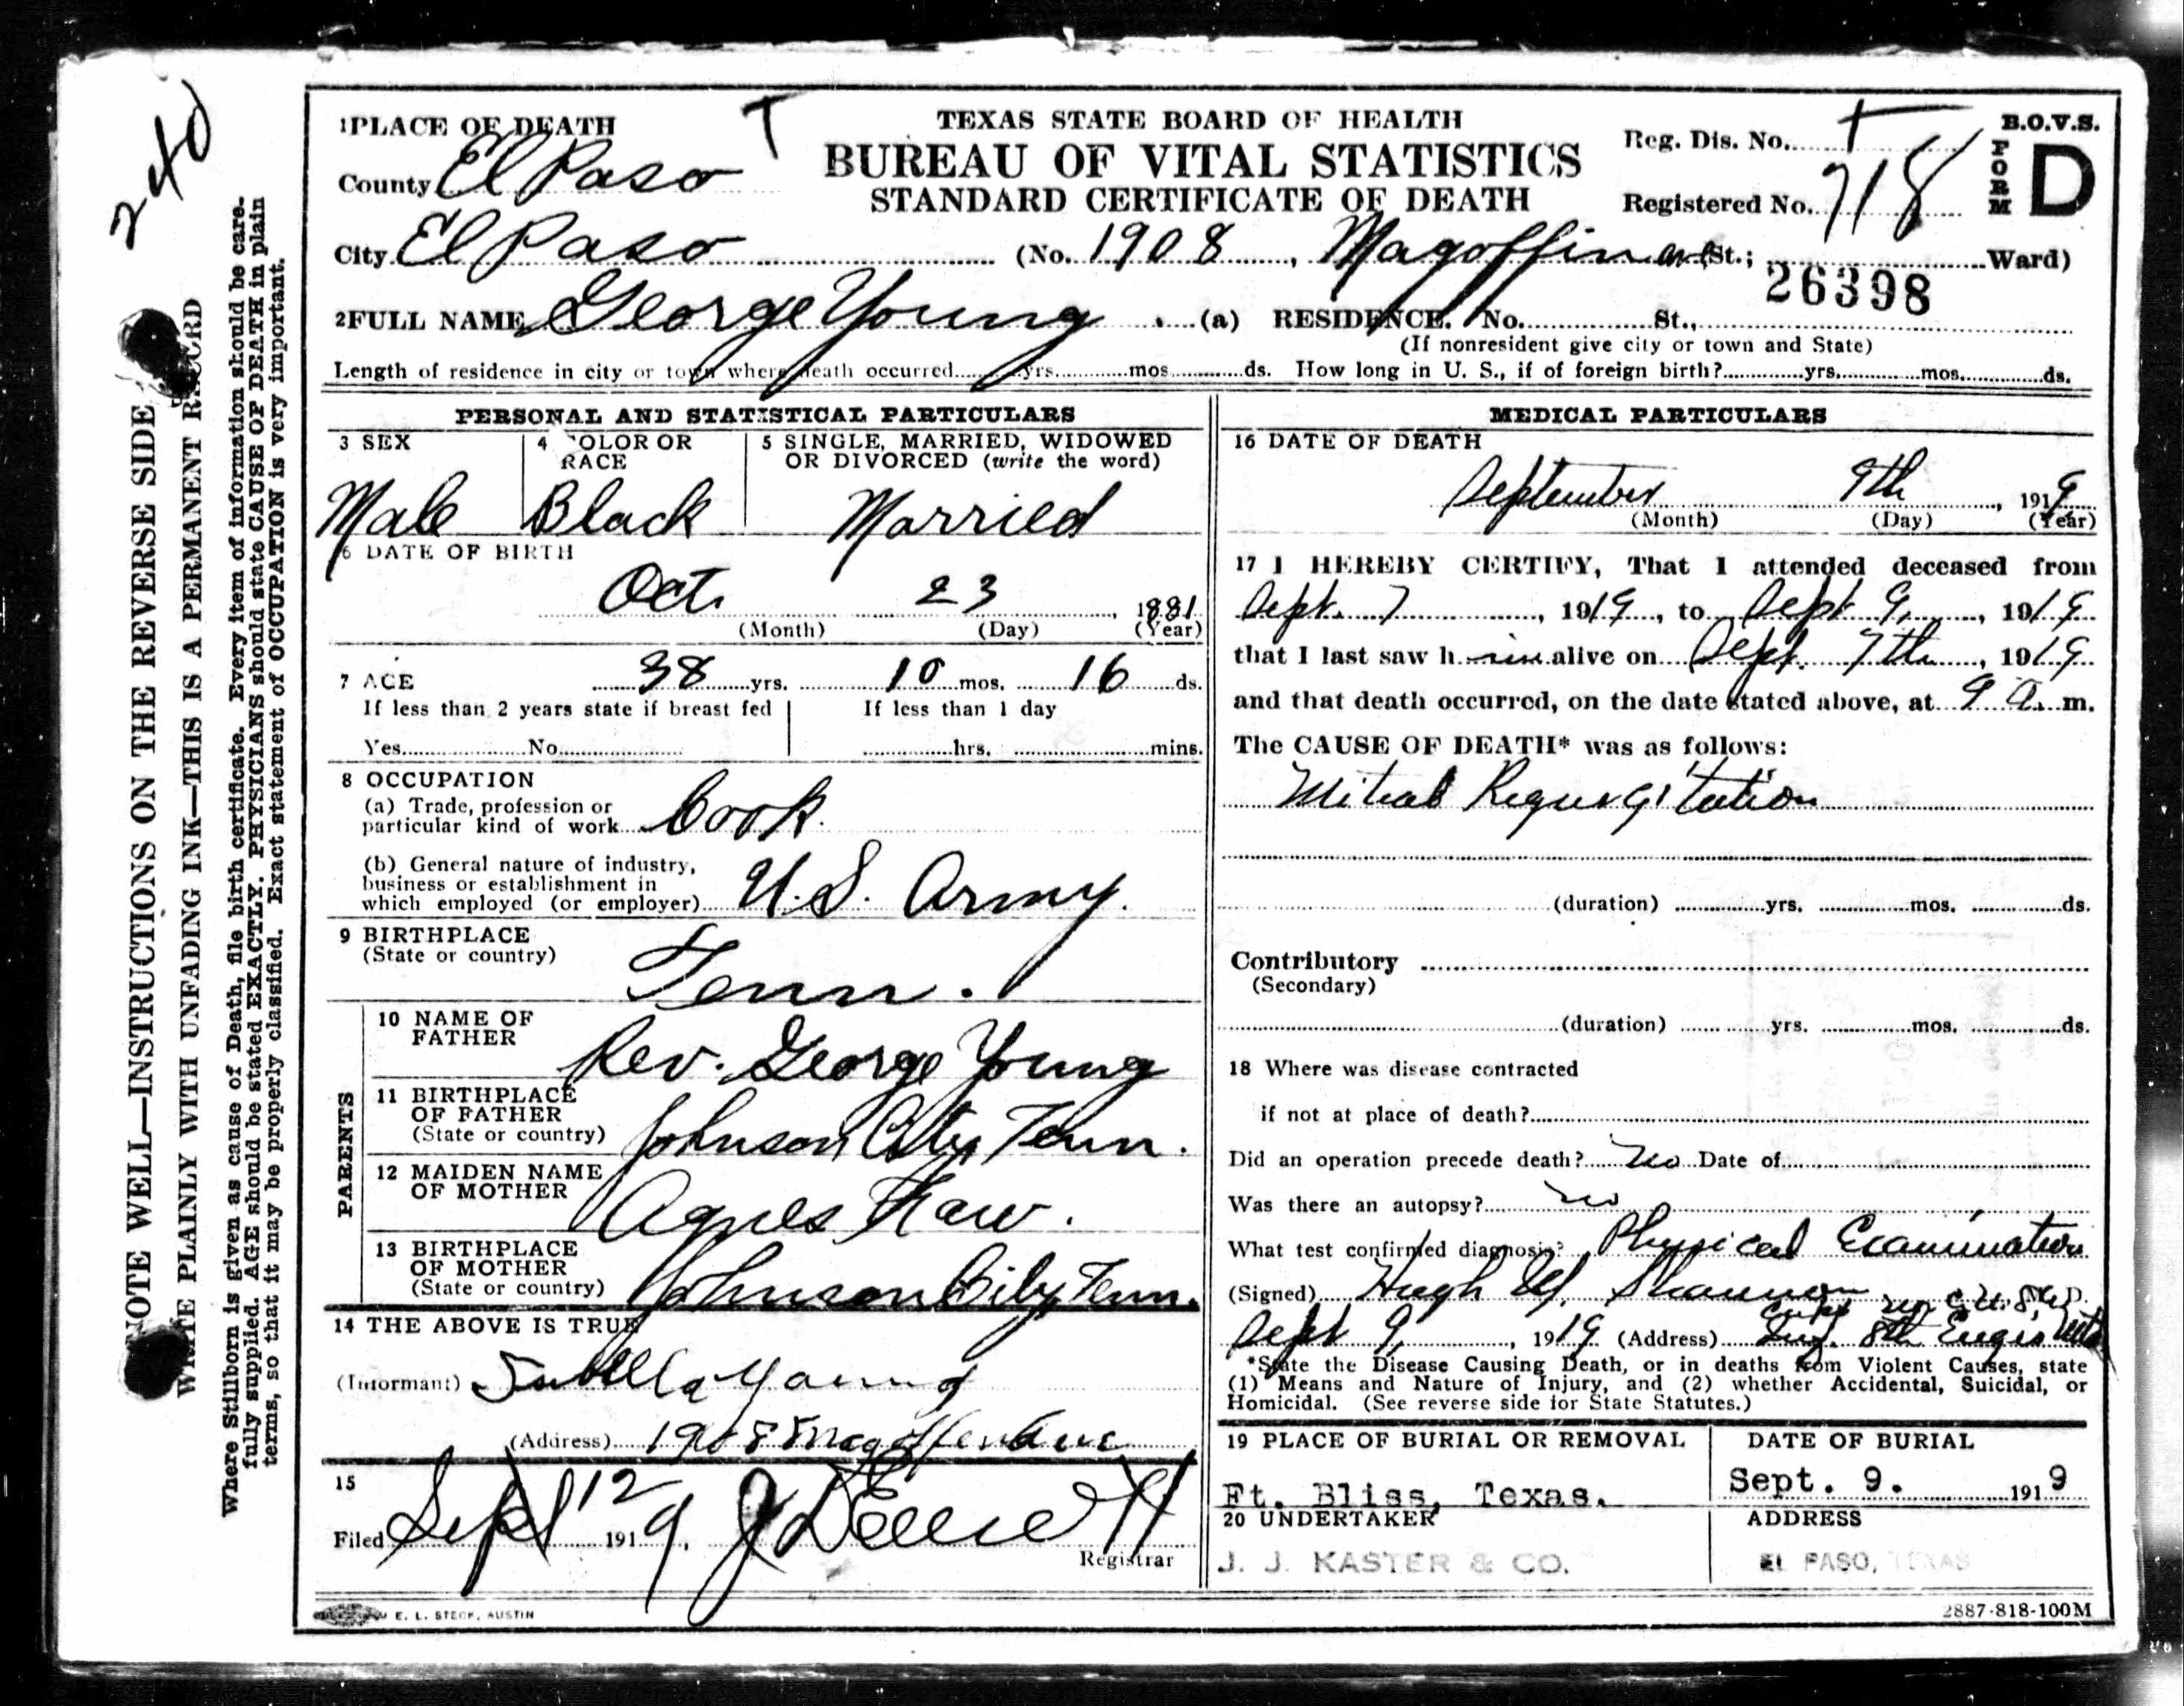 240
NOTE WELL—INSTRUCTIONS ON THE REVERSE SIDE
WRITE PLAINLY WITH UNFADING INK—THIS IS A PERMANENT RECORD
Where Stillborn is given as cause of Death, file birth certificate. Every item of information should be care-
fully supplied. AGE should be stated EXACTLY. PHYSICIANS should state CAUSE OF DEATH in plain
terms, so that it may be properly classified. Exact statement of OCCUPATION is very important.
TEXAS STATE BOARD OF HEALTH
BUREAU OF VITAL STATISTICS
STANDARD CERTIFICATE OF DEATH
B.O.V.S.
FORM D
Reg. Dis. No.
Registered No. 718
1 PLACE OF DEATH
County El Paso
City El Paso (No. 1908, Magoffin ave St.; Ward)
26398
2 FULL NAME George Young (a) RESIDENCE. No. St.,
(If nonresident give city or town and State)
Length of residence in city or town where death occurred yrs. mos. ds. How long in U. S., if of foreign birth? yrs. mos. ds.
PERSONAL AND STATISTICAL PARTICULARS
3 SEX
Male
4 COLOR OR RACE
Black
5 SINGLE, MARRIED, WIDOWED
OR DIVORCED (write the word)
Married
6 DATE OF BIRTH
Oct. 23, 1881
(Month) (Day) (Year)
7 AGE 38 yrs. 10 mos. 16 ds.
If less than 2 years state if breast fed If less than 1 day
Yes No hrs. mins.
8 OCCUPATION
(a) Trade, profession or
particular kind of work Cook
(b) General nature of industry,
business or establishment in
which employed (or employer) U.S. Army.
9 BIRTHPLACE
(State or country) Tenn.
PARENTS
10 NAME OF
FATHER Rev. George Young
11 BIRTHPLACE
OF FATHER
(State or country) Johnson City Tenn.
12 MAIDEN NAME
OF MOTHER Agnes
13 BIRTHPLACE
OF MOTHER
(State or country) Johnson City Tenn.
14 THE ABOVE IS TRUE
(Informant) Young
(Address) 1908 Magoffin Ave
15
Filed Sept 12 1919,
Registrar
MEDICAL PARTICULARS
16 DATE OF DEATH
September 9th, 1919
(Month) (Day) (Year)
17 I HEREBY CERTIFY, That I attended deceased from
Sept. 7, 1919, to Sept 9, 1919
that I last saw him alive on Sept. 9th, 1919
and that death occurred, on the date stated above, at 9 a. m.
The CAUSE OF DEATH* was as follows:
Mitral Regurgitation
(duration) yrs. mos. ds.
Contributory
(Secondary)
(duration) yrs. mos. ds.
18 Where was disease contracted
if not at place of death?
Did an operation precede death? No Date of
Was there an autopsy? no
What test confirmed diagnosis? Physical Examination
(Signed) Hugh W. Shannon
Sept 9, 1919 (Address) 8th Engis
*State the Disease Causing Death, or in deaths from Violent Causes, state
(1) Means and Nature of Injury, and (2) whether Accidental, Suicidal, or
Homicidal. (See reverse side for State Statutes.)
19 PLACE OF BURIAL OR REMOVAL
Ft. Bliss, Texas.
DATE OF BURIAL
Sept. 9. 1919
20 UNDERTAKER
J. J. KASTER & CO.
ADDRESS
EL PASO, TEXAS
E. L. STECK, AUSTIN
2887-818-100M